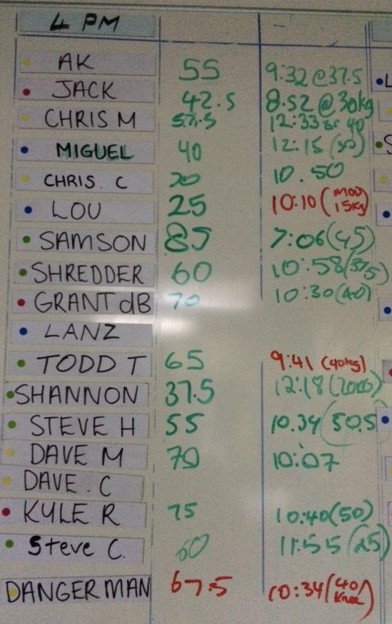 4 PM
AK 55 9:32 @ 37.5
JACK 42.5 8.52 @ 30kg
CHRIS M 57.5 12:33 40
MIGUEL 40 12:15 (30)
CHRIS. C 10.50
LOU 25 10:10 (MOD 15kg)
SAMSON 85 7:06 (45)
SHREDDER 60 10:58 (37.5)
GRANT dB 70 10:30 (40)
LANZ
TODD T 65 9:41 (40kg)
SHANNON 37.5 12:18
STEVE H 55 10.34 (50.5
DAVE M 70 10:07
DAVE. C
KYLE R 75 10:40 (50)
Steve C. 60 11:55 (25)
DANGERMAN 67.5 10:34 (40 Knee)